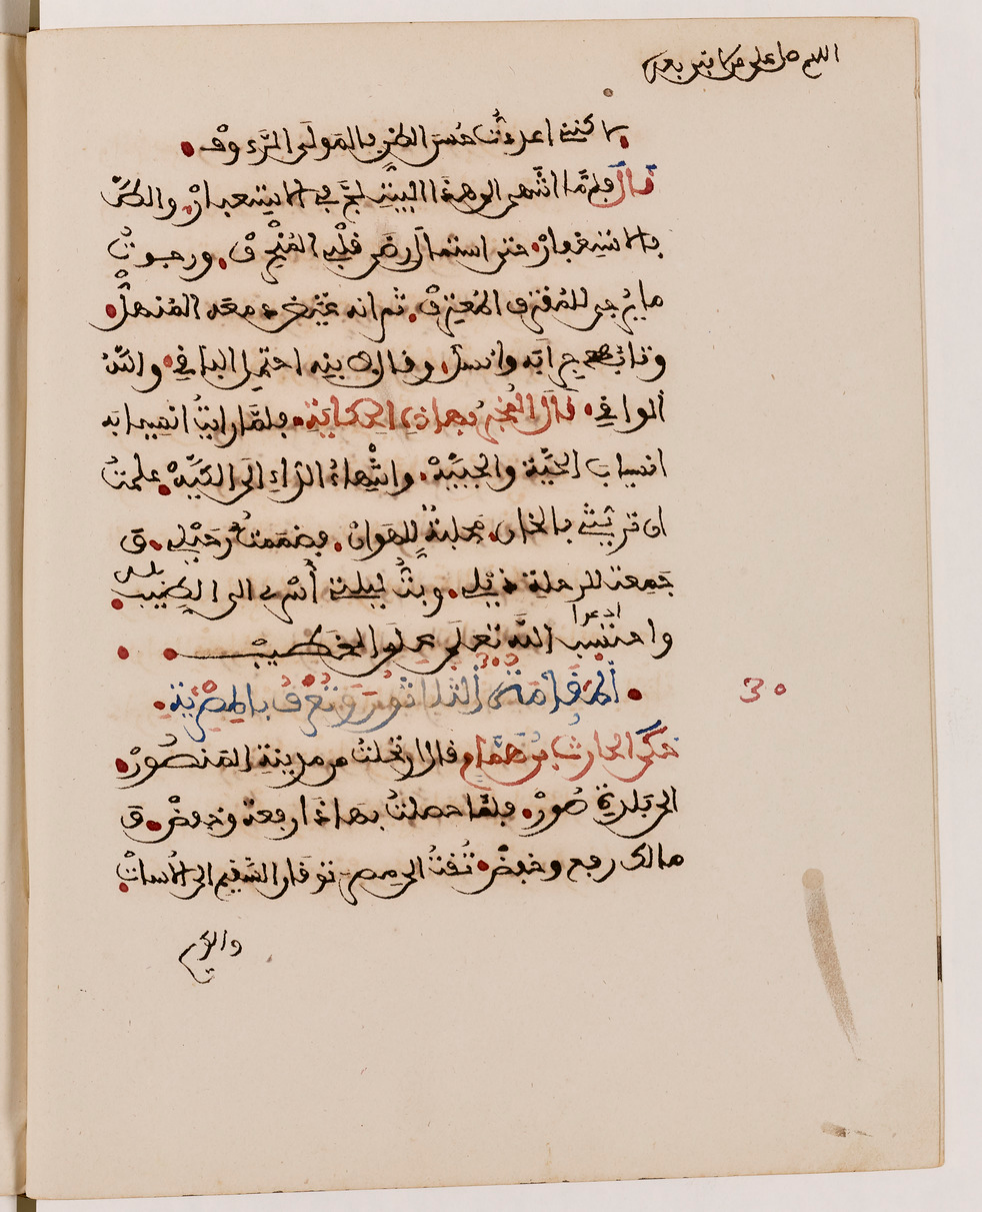 اللهم صل على من لا نبي بعده
لما كنت اعددت حسن الظن بالمولى الرءوف
قال فلما انتهى الى هذا البيت لج في الاستعبار والظ
بالاستغفار حتى استمال رضى قلبي المنحرف ورجوت
ما يرجى للمقترف المعترف ثم انه غيض دمعه المنهل
وتابط جرابه وانسل وقال لابنه احتمل الباقي والله
الواقي قال المخبر بهاذه الحكاية فلما رايت انسياب
انسياب الحية والحييية وانتهاء الداء الى الكية علمت
ان تريثي بالخان مجلبة للهوان فضممت رحيلي و
جمعت للرحلة ذيلي وبت ليلتي أسري الى الطيب
واحتسب الله تعلى على الخطيب
المقامة الثلاثون وتعرف بالصورية
حكى الحارث بن همام قال ارتحلت من مدينة المنصور
الى بلدة صور فلما حصلت بها ذا رفعة وخفض و
مالك رفع وخفض تقت الى مصر توقان السقيم الى الاساة
والكريم
30